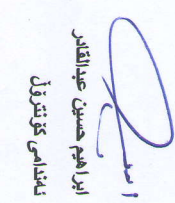 ابراهیم حسین عبدالقادر
ئەندامی کۆنترۆڵ